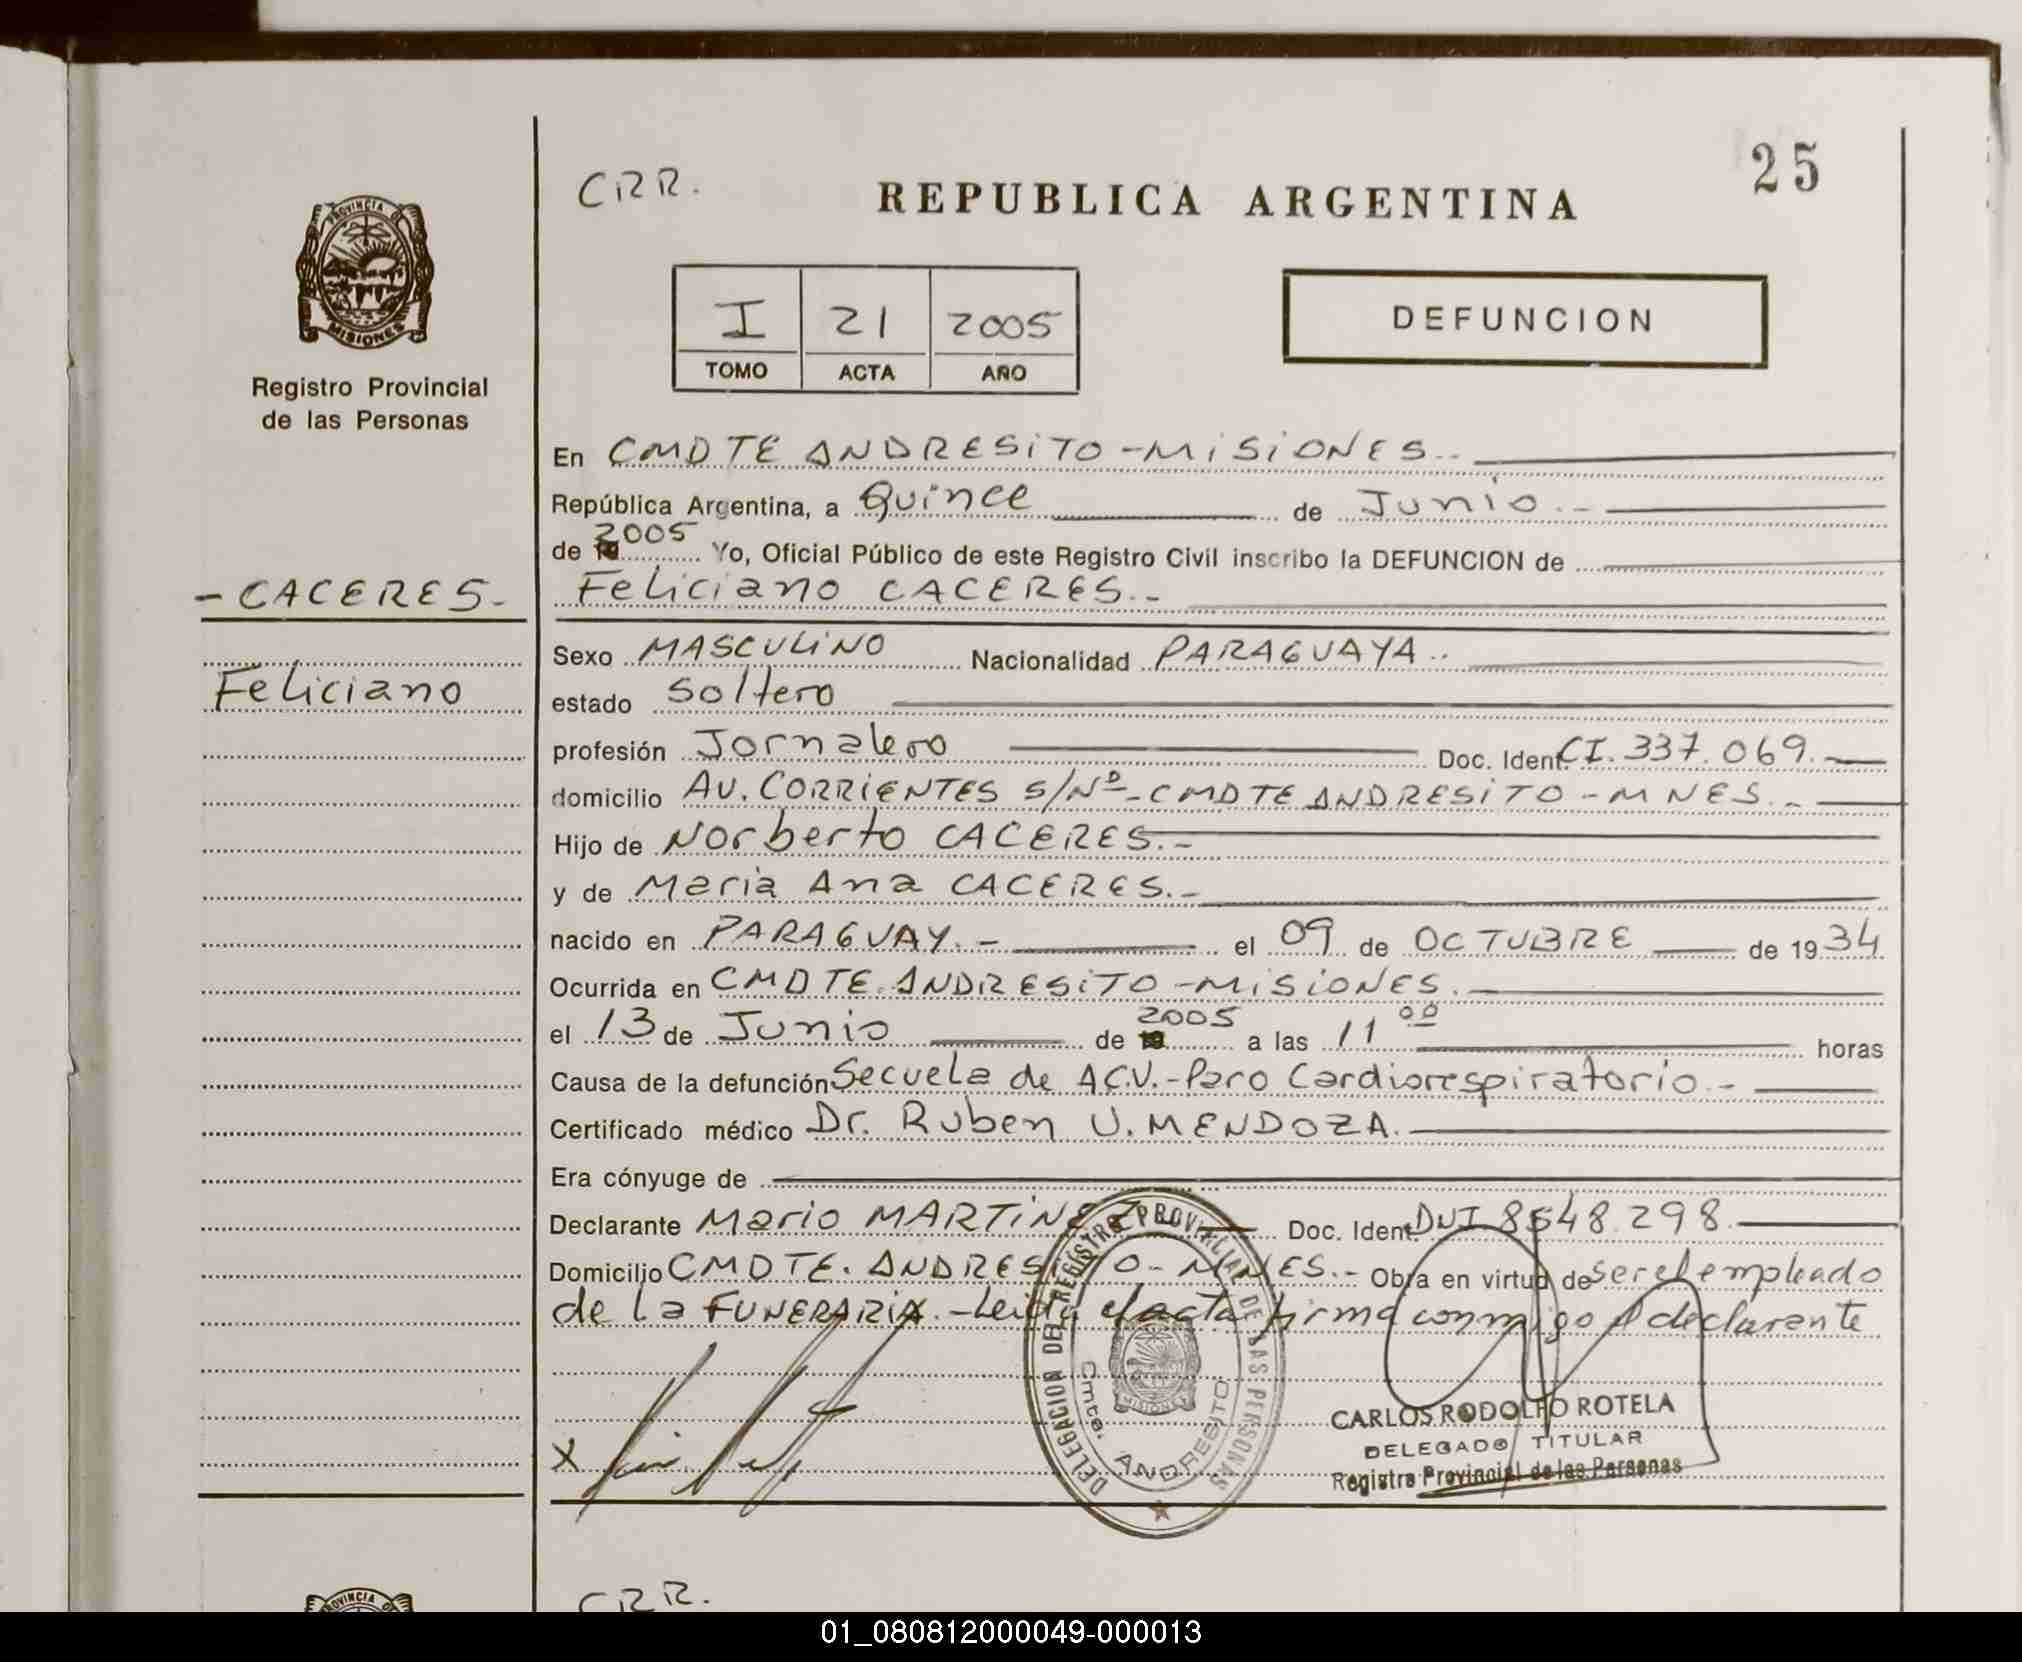 25
CRR.
REPUBLICA ARGENTINA
PROVINCIA DE
MISIONES
Registro Provincial
de las Personas
I 21 2005
TOMO ACTA AÑO
DEFUNCION
En CMDTE ANDRESITO - MISIONES.-
República Argentina, a Quince de Junio.-
de 2005 Yo, Oficial Público de este Registro Civil inscribo la DEFUNCION de
- CACERES -
Feliciano
Feliciano CACERES.-
Sexo MASCULINO Nacionalidad PARAGUAYA..
estado Soltero
profesión Jornalero Doc. Ident. CI. 337.069.-
domicilio AV. CORRIENTES S/Nº - CMDTE ANDRESITO - MNES.-
Hijo de Norberto CACERES.-
y de Maria Ana CACERES.-
nacido en PARAGUAY.- el 09 de OCTUBRE de 1934
Ocurrida en CMDTE. ANDRESITO - MISIONES.
el 13 de Junio de 2005 a las 11 00 horas
Causa de la defunción Secuela de A.C.V.- Paro Cardiorespiratorio.-
Certificado médico Dr. Ruben U. MENDOZA.
Era cónyuge de
Declarante Mario MARTINEZ Doc. Ident. DNI 8548.298.
Domicilio CMDTE. ANDRESITO - MNES.- Obra en virtud de ser el empleado
de la FUNERARIA.- Leida el acta firma conmigo el declarante
X
DELEGACION DEL REGISTRO PROVINCIAL DE LAS PERSONAS
Cmte. ANDRESITO
MISIONES
CARLOS RODOLFO ROTELA
DELEGADO TITULAR
Registro Provincial de las Personas
CRR.
PROVINCIA DE
01_080812000049-000013